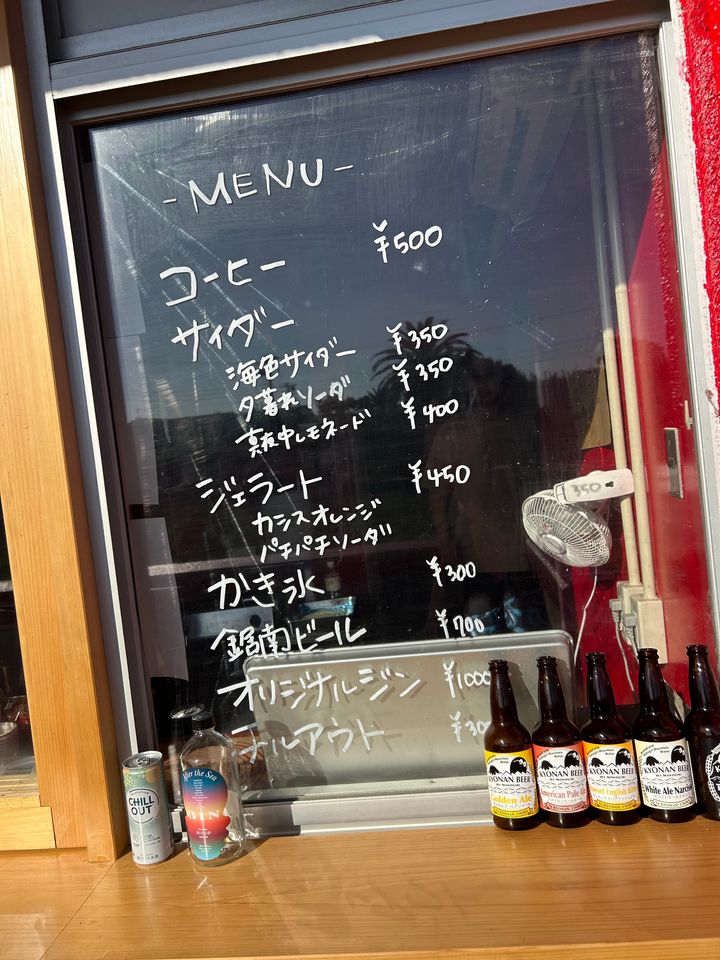 -MENU-
コーヒー ¥500
サイダー
海色サイダー ¥350
夕暮れソーダ ¥350
真夜中レモネード ¥400
ジェラート ¥450
カシスオレンジ
パチパチソーダ
350
かき氷 ¥300
鋸南ビール ¥700
オリジナルジン ¥1000
チルアウト ¥300
CHILL OUT
After the Sea
GIN
KYONAN BEER
Golden Ale
KYONAN BEER
American Pale Ale
KYONAN BEER
KYONAN BEER
White Ale Narcisse